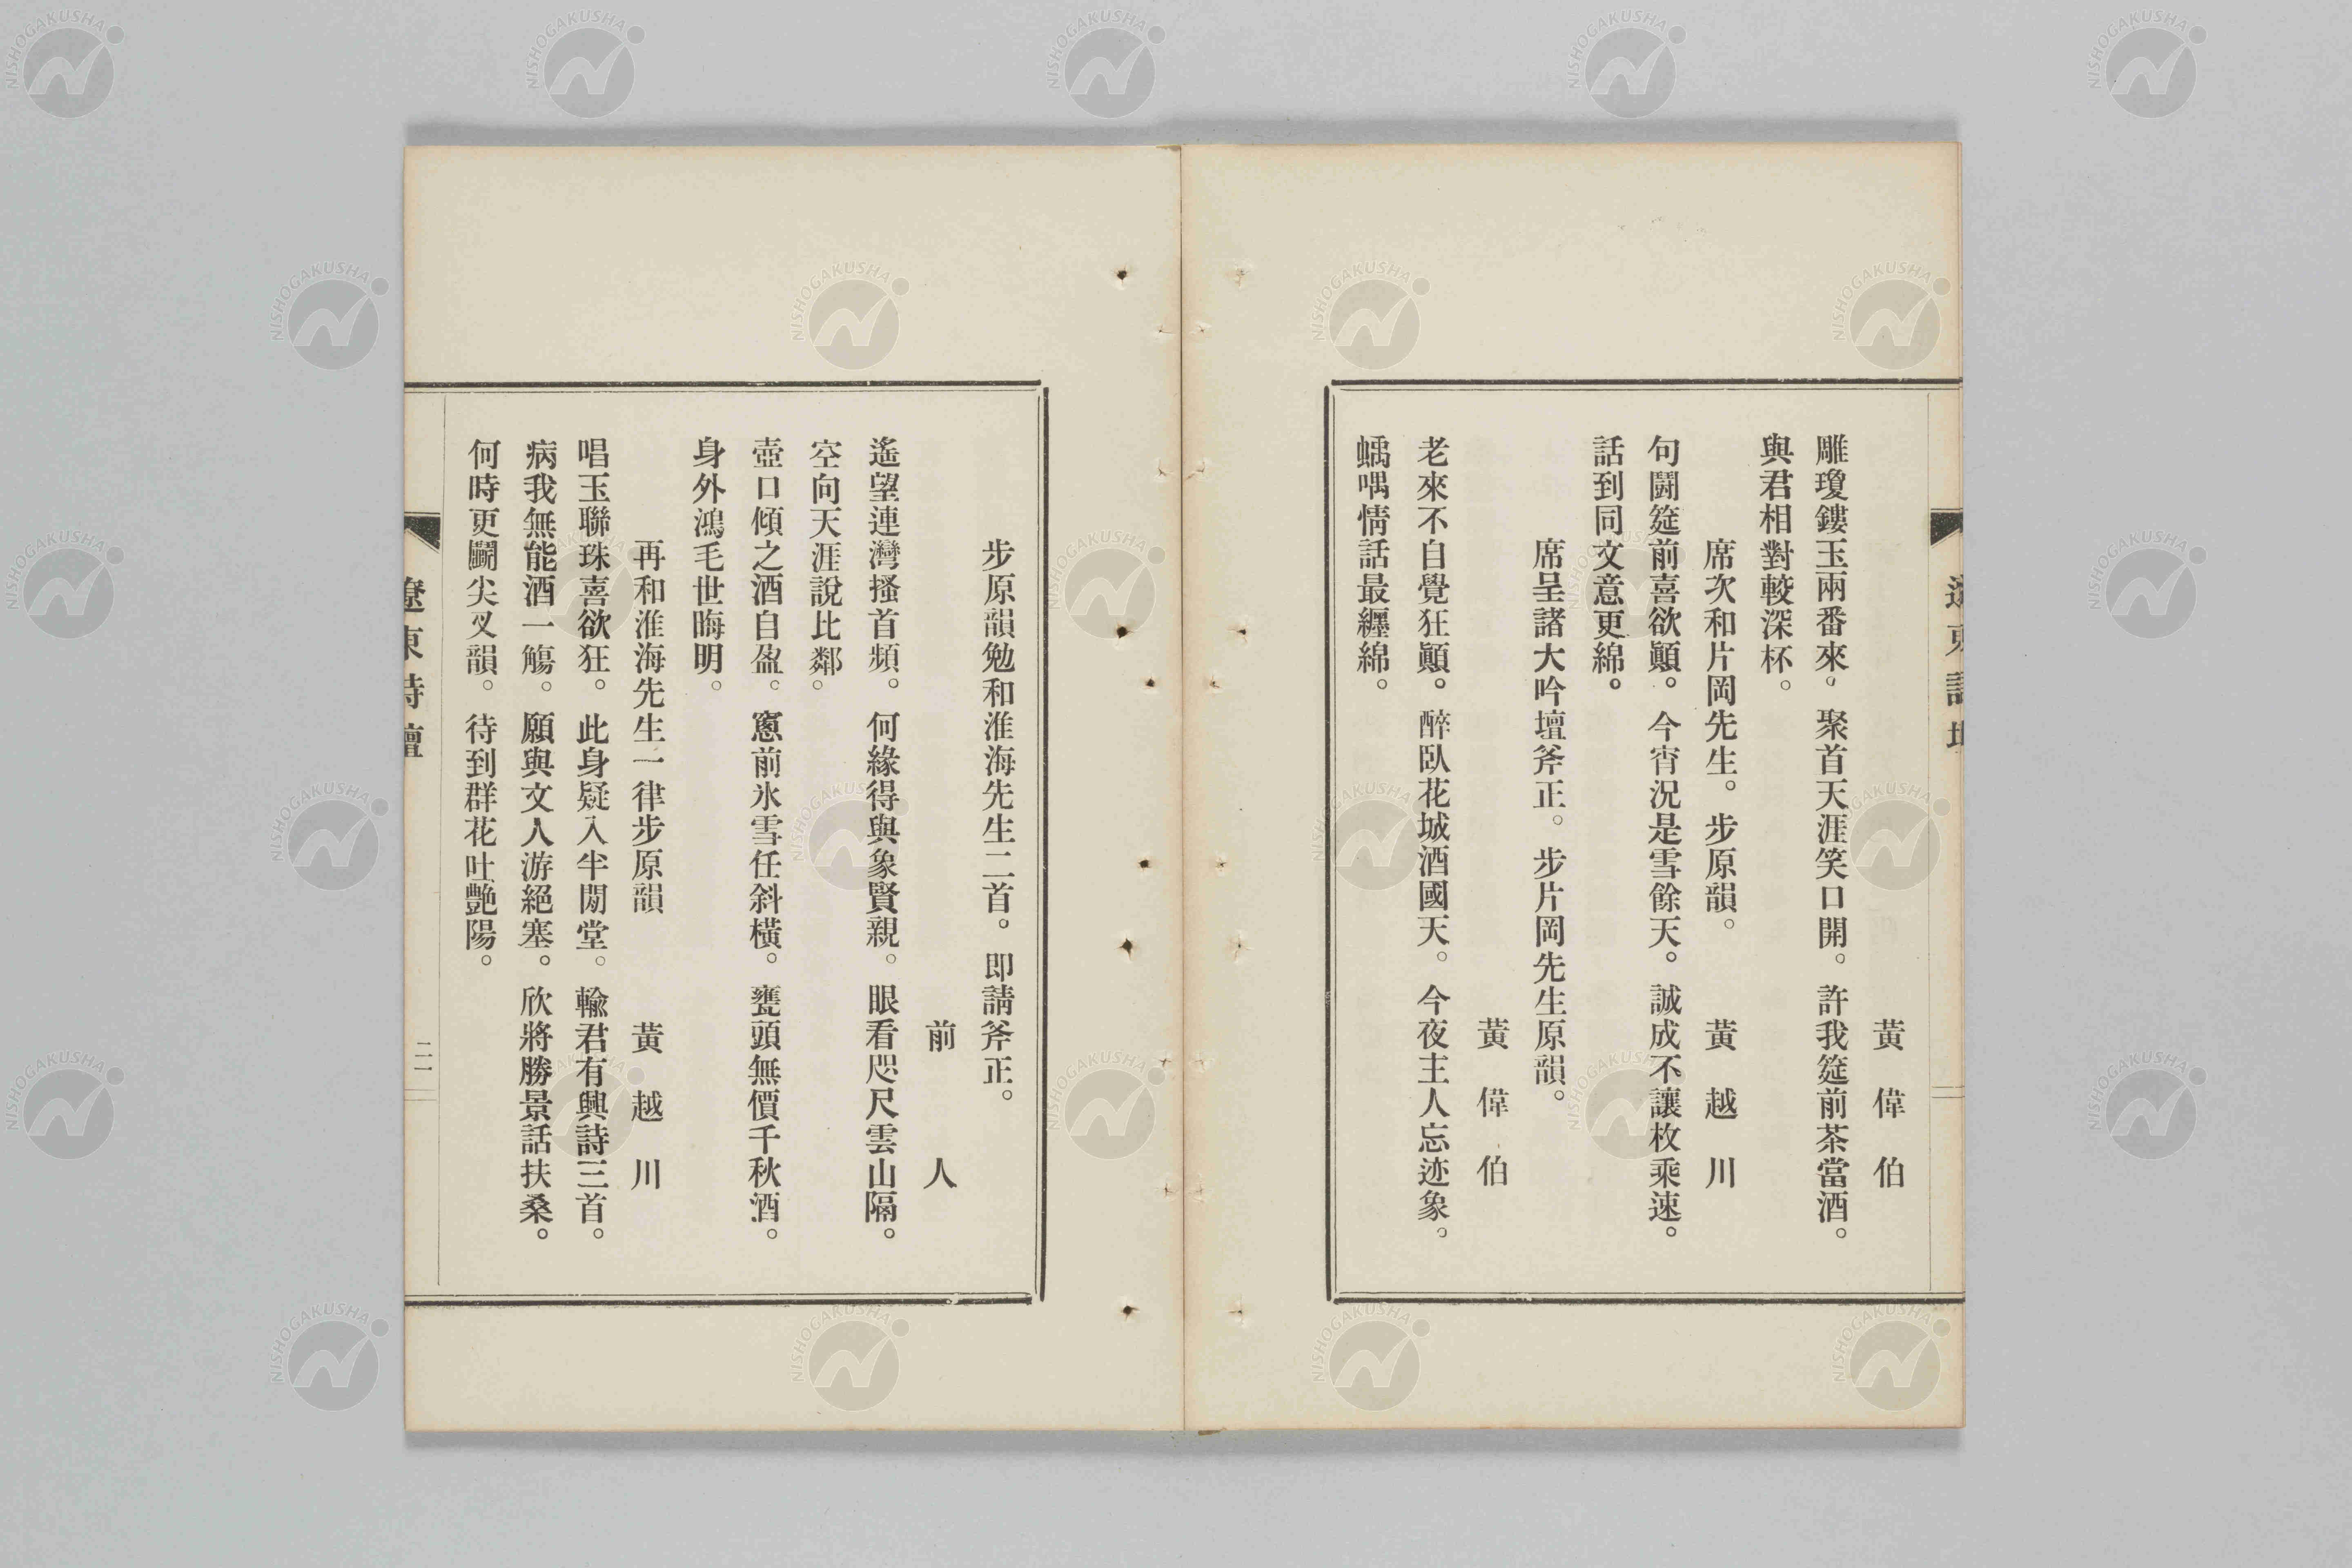 黃偉伯
雕瓊鏤玉兩番來。聚首天涯笑口開。許我筵前茶當酒。
與君相對較深杯。
席次和片岡先生。步原韻。　黃越川
句鬭筵前喜欲顚。今宵況是雪餘天。誠成不讓枚乘速。
話到同文意更綿。
席呈諸大吟壇斧正。步片岡先生原韻。
黃偉伯
老來不自覺狂顚。醉臥花城酒國天。今夜主人忘迹象。
喁情話最纏綿。
步原韻勉和淮海先生二首。即請斧正。
前人
遙望連灣搔首頻。何緣得與象賢親。眼看咫尺雲山隔。
空向天涯說比鄰。
壺口傾之酒自盈。窻前氷雪任斜橫。甕頭無價千秋酒。
身外鴻毛世晦明。
再和淮海先生一律步原韻　黃越川
唱玉聯珠喜欲狂。此身疑入半閒堂。輸君有興詩三首。
病我無能酒一觴。願與文人游絕塞。欣將勝景話扶桑。
何時更鬭尖叉韻。待到群花吐艷陽。
遼東詩壇
二一
NISHOGAKUSHA